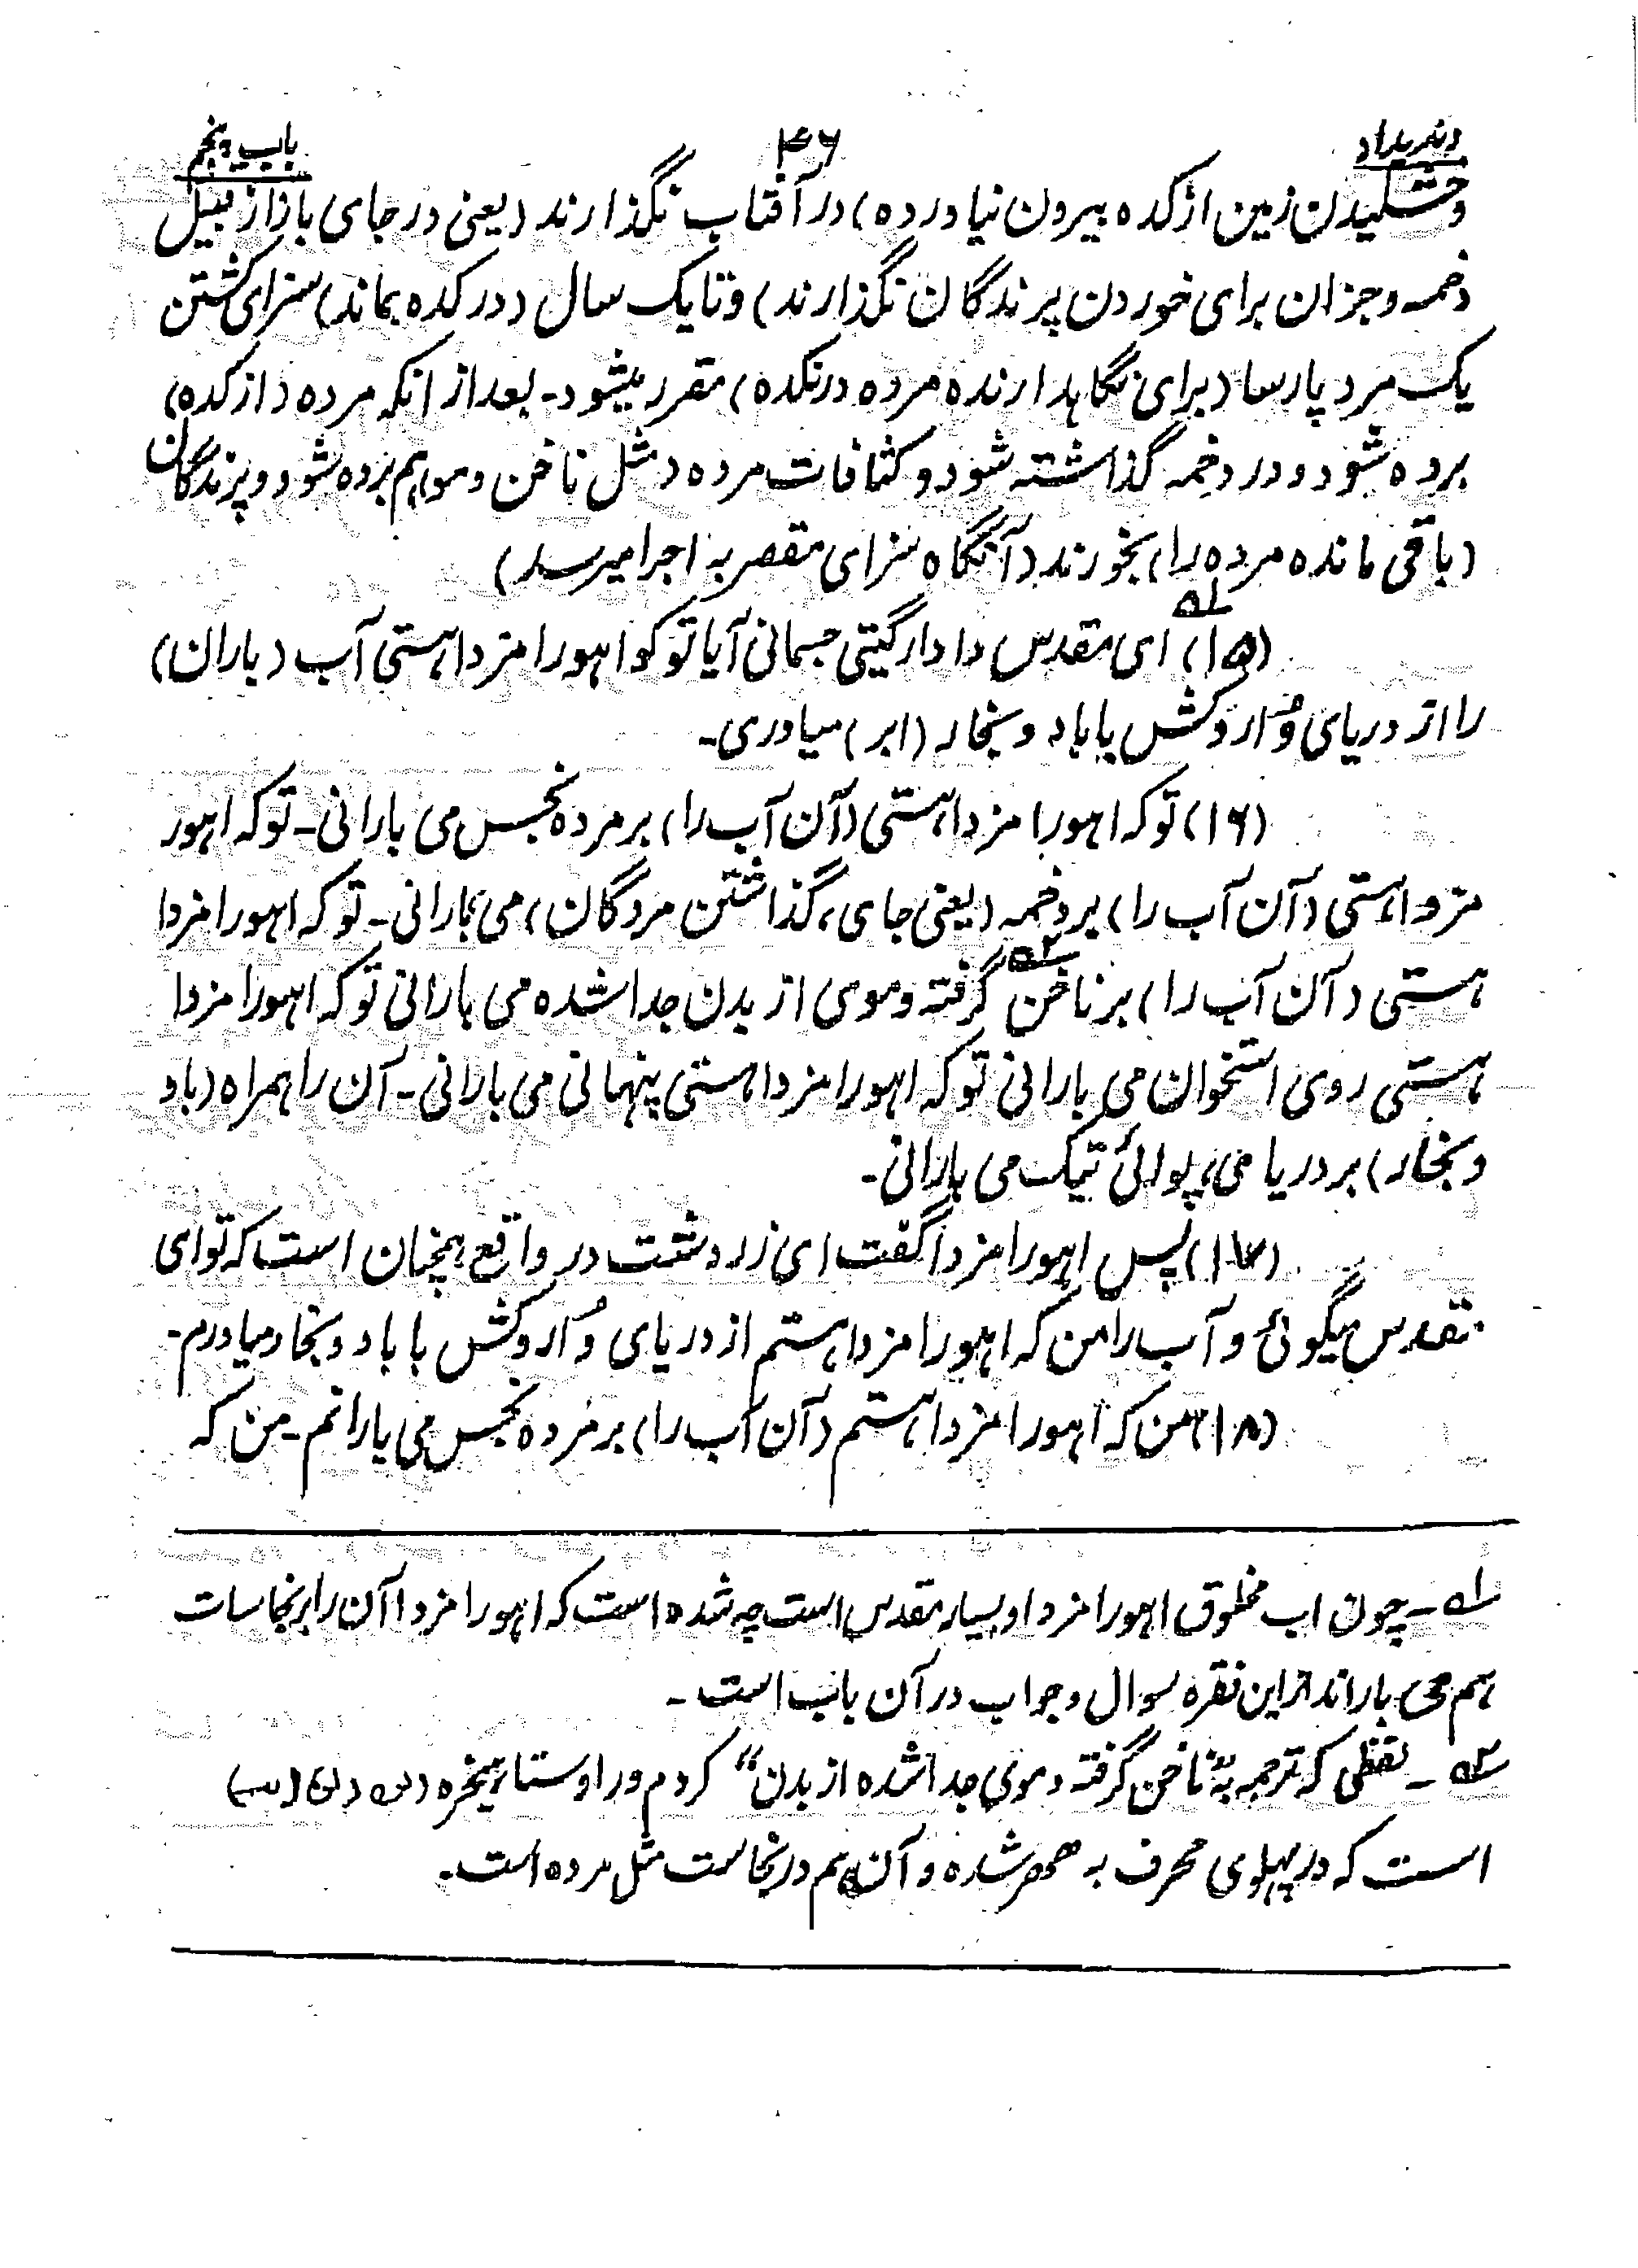 وندیداد ۴۶ باب پنجم
وخشکیدن زمین از کده بیرون نیاورده) در آفتاب نگذارند (یعنی در جای باز از قبیل
دخمه و جز ان برای خوردن پرندگان نگذارند) و تا یک سال (در کده بماند) سزای کشتن
یک مرد پارسا (برای نگاهدارنده مرده در کده) مقرر میشود - بعد از انکه مرده (از کده)
برده شود و در دخمه گذاشته شود و کثافات مرده مثل ناخن و مو هم برده شود و پرندگان
(باقی مانده مرده را) بخورند (آنگاه سزای مقصر به اجرا میرسد)
(۱۵)۱ ای مقدس دادار گیتی جسمانی آیا تو کو اهورامزدا هستی آب (باران)
را از دریای وُاُروکش با باد و بخار (ابر) میاوری -
(۱۶) تو که اهورا مزدا هستی (آن آب را) بر مرده نجس می بارانی - تو که اهور
مزدا هستی (آن آب را) بر دخمه (یعنی جای گذاشتن مردگان) می بارانی - تو که اهورا مزدا
هستی (آن آب را) بر ناخن۲ گرفته و موی از بدن جدا شده می بارانی تو که اهورا مزدا
هستی روی استخوان می بارانی تو که اهورا مزدا هستی پنهانی می بارانی - آن را همراه (باد
و بخار) بر دریا می پوائی تیک می بارانی -
(۱۷) پس اهورا مزدا گفت ای زردشت در واقع همچنان است که تو ای
مقدس میگوئی و آب را من که اهورا مزدا هستم از دریای وُاُروکش با باد و بخار میاورم -
(۱۸) من که اهورا مزدا هستم (آن آب را) بر مرده نجس می بارانم - من که
۱ - چون اب مخلوق اهورا مزدا و بسیار مقدس است چه شده است که اهورا مزدا آن را بر نجاسات
هم می باراند از این فقره سوال و جواب در آن باب است -
۲ - لفظی که ترجمه به "ناخن گرفته و موی جدا شده از بدن" کردم در اوستا
است که در پهلوی محرف به شده و آن هم در نجاست مثل مرده است -